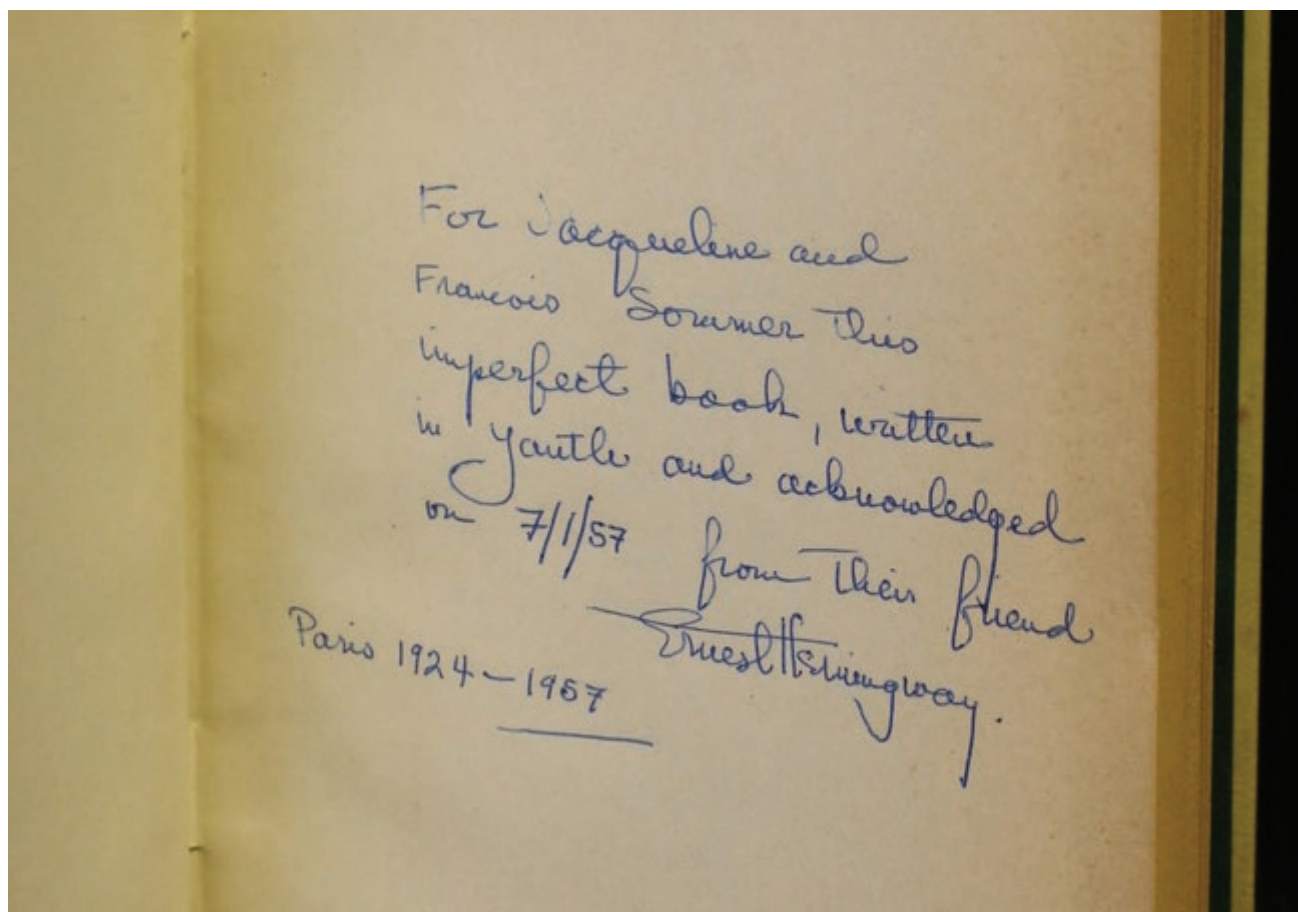 For Jacqueline and
Francois Sommer This
imperfect book, written
in youth and acknowledged
on 7/1/57 from Their friend
Ernest Hemingway.
Paris 1924 — 1957